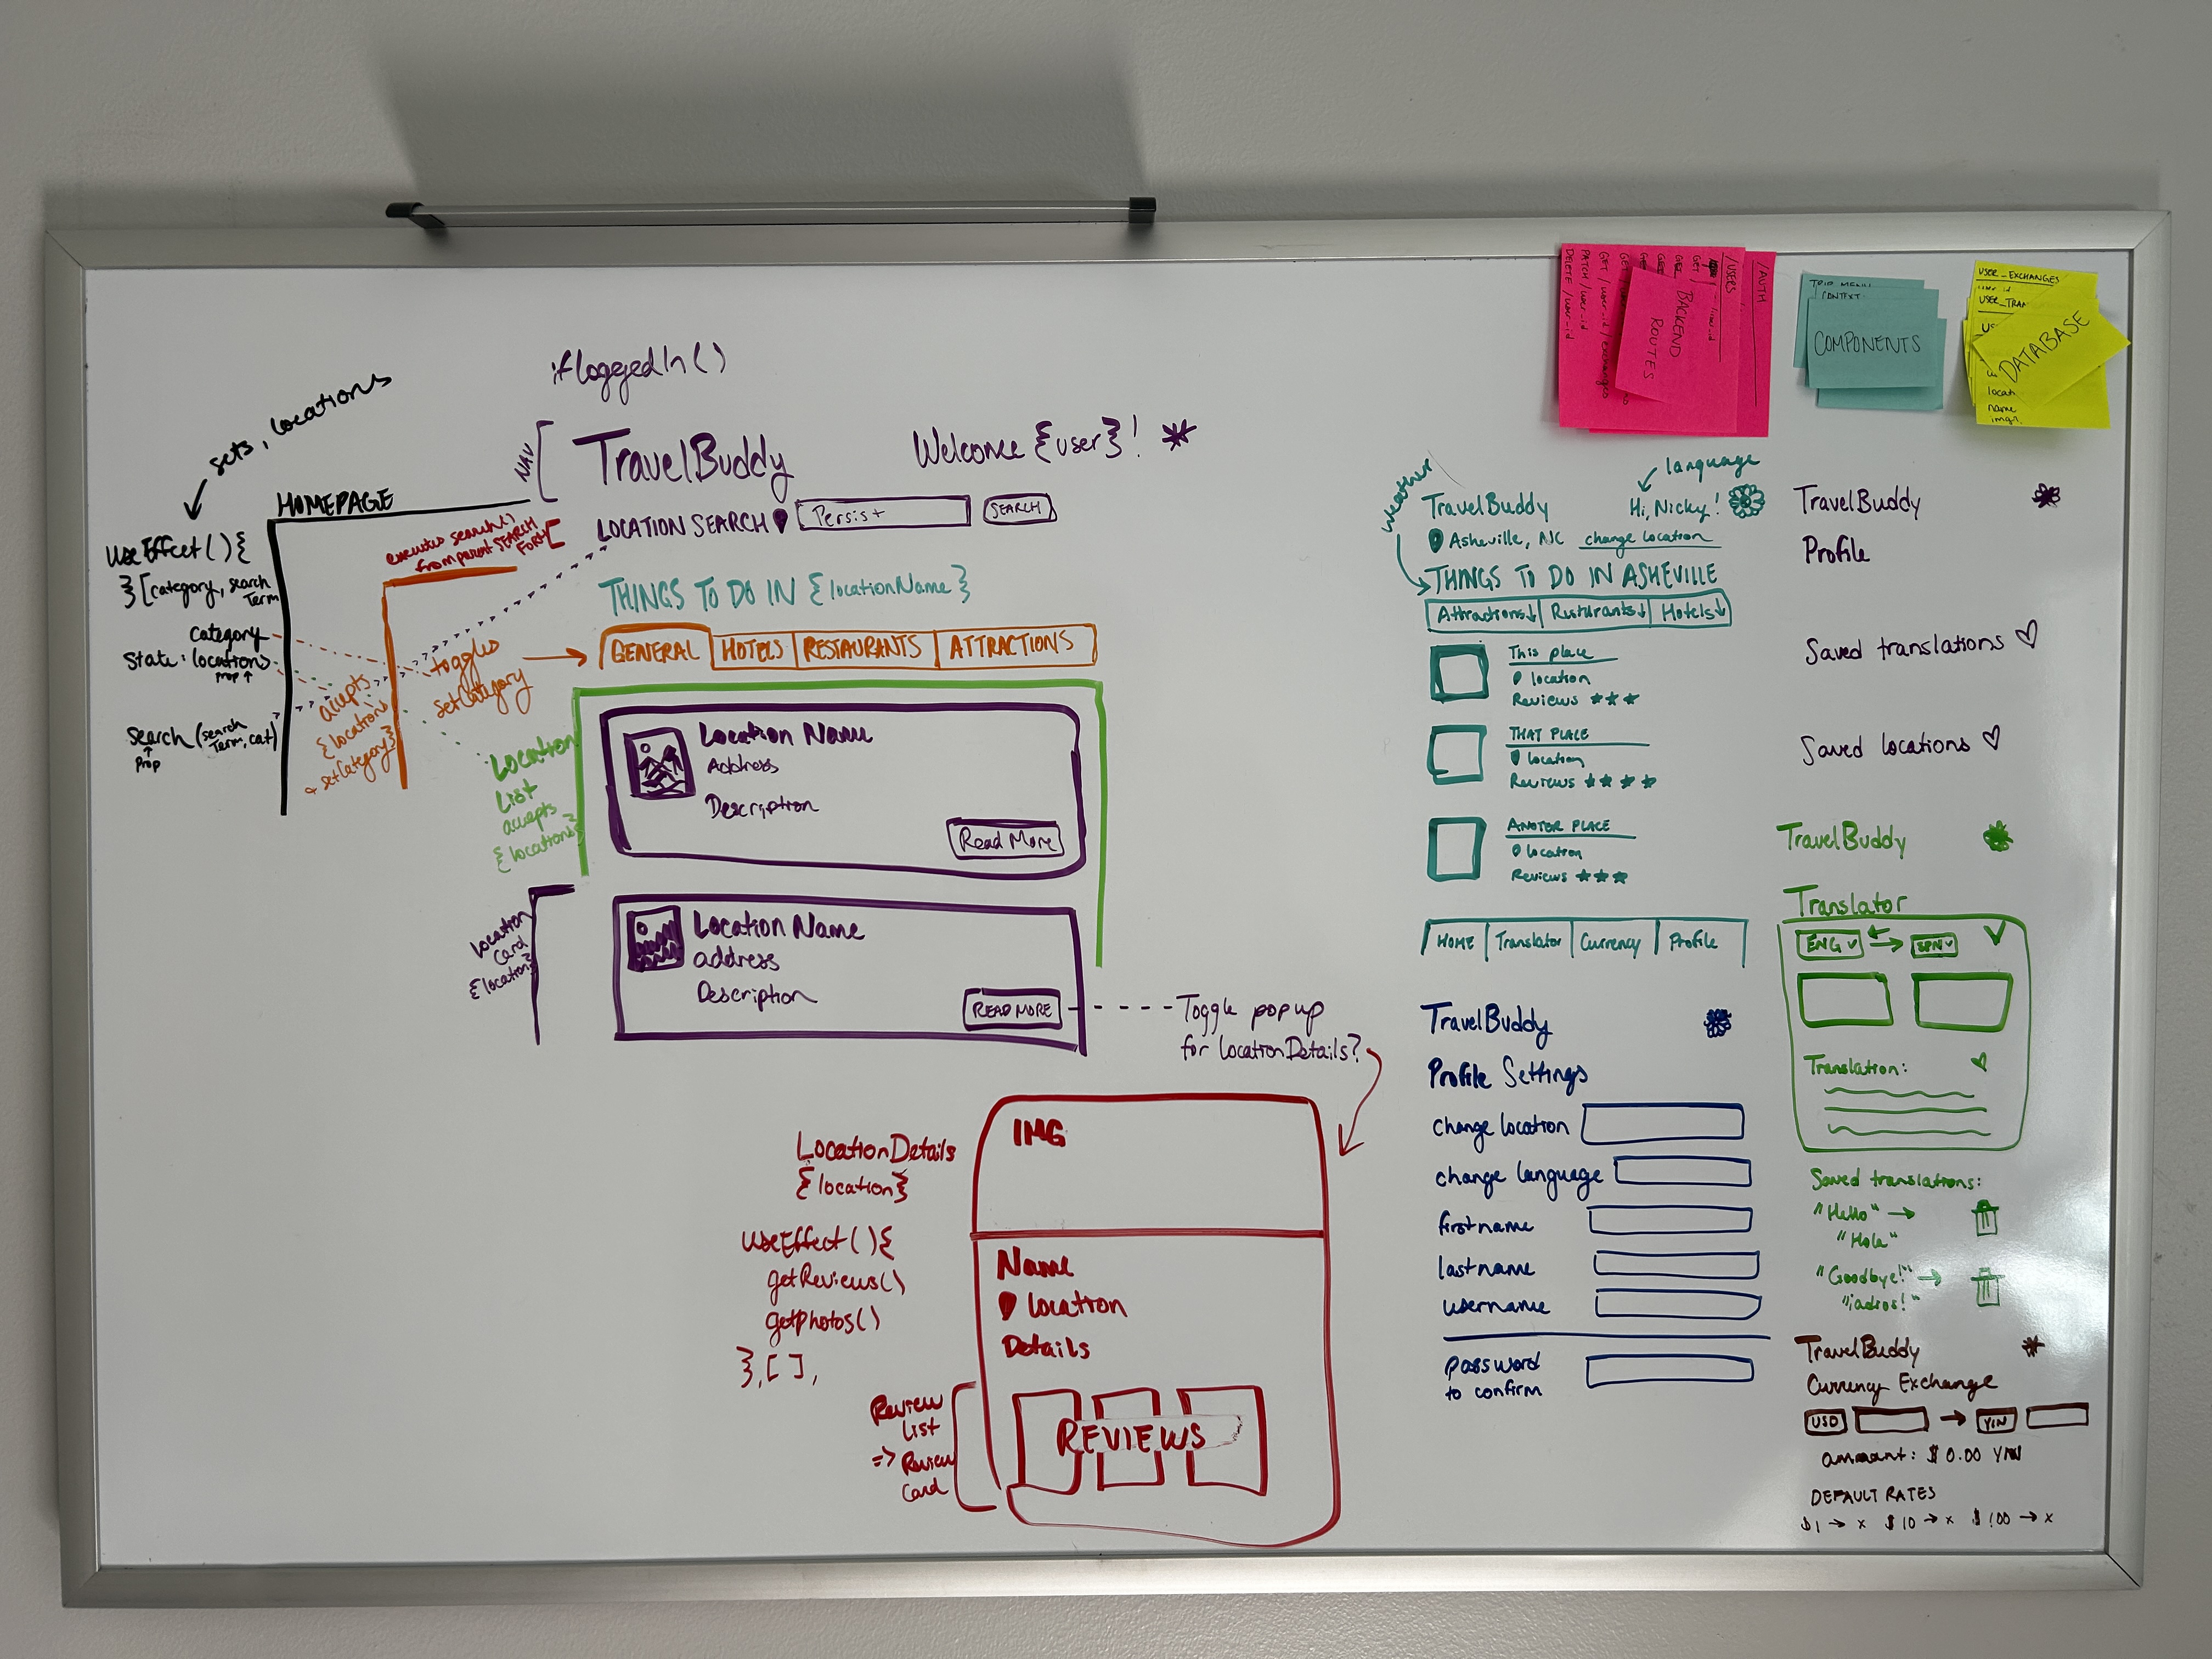 if loggedIn()
sets, locations
NAV
TravelBuddy
Welcome {user}!
HOMEPAGE
LOCATION SEARCH
Persist
SEARCH
executes search()
from parent SEARCH
FORM
useEffect(){
}[category, search
Term
category
State: locations
Prop ↑
Search (search
Term, cat)
↑
Prop
accepts
{locations
+ setCategory}
toggles
setCategory
THINGS TO DO IN {locationName}
GENERAL
HOTELS
RESTAURANTS
ATTRACTIONS
Location
List
accepts
{locations}
Location Name
Address
Description
Read More
Location
Card
{location}
Location Name
address
Description
READ MORE
Toggle popup
for LocationDetails?
LocationDetails
{location}
useEffect(){
getReviews()
getPhotos()
},[],
Review
List
=> Review
Card
IMG
Name
location
Details
REVIEWS
/AUTH
/USERS
GET
PATCH /user_id
DELETE /user_id
BACKEND
ROUTES
CONTEXT
COMPONENTS
USER_EXCHANGES
USER_TRAN
DATABASE
locat
name
weather
language
TravelBuddy
Hi, Nicky!
Asheville, NC change location
THINGS TO DO IN ASHEVILLE
Attractions↓
Resturants↓
Hotels↓
This place
location
Reviews ★★★
THAT PLACE
location
Reviews ★★★★
ANOTER PLACE
location
Reviews ★★★
HOME
Translator
Currency
Profile
TravelBuddy
Profile Settings
change location
change language
firstname
lastname
username
password
to confirm
TravelBuddy
Profile
Saved translations ♡
Saved locations ♡
TravelBuddy
Translator
ENG
SPN
Translation:
Saved translations:
"Hello" →
"Hola"
"Goodbye!" →
"¡adios!"
TravelBuddy
Currency Exchange
USD → YIN
ammount: $0.00 YIN
DEFAULT RATES
$1 → x $10 → x $100 → x